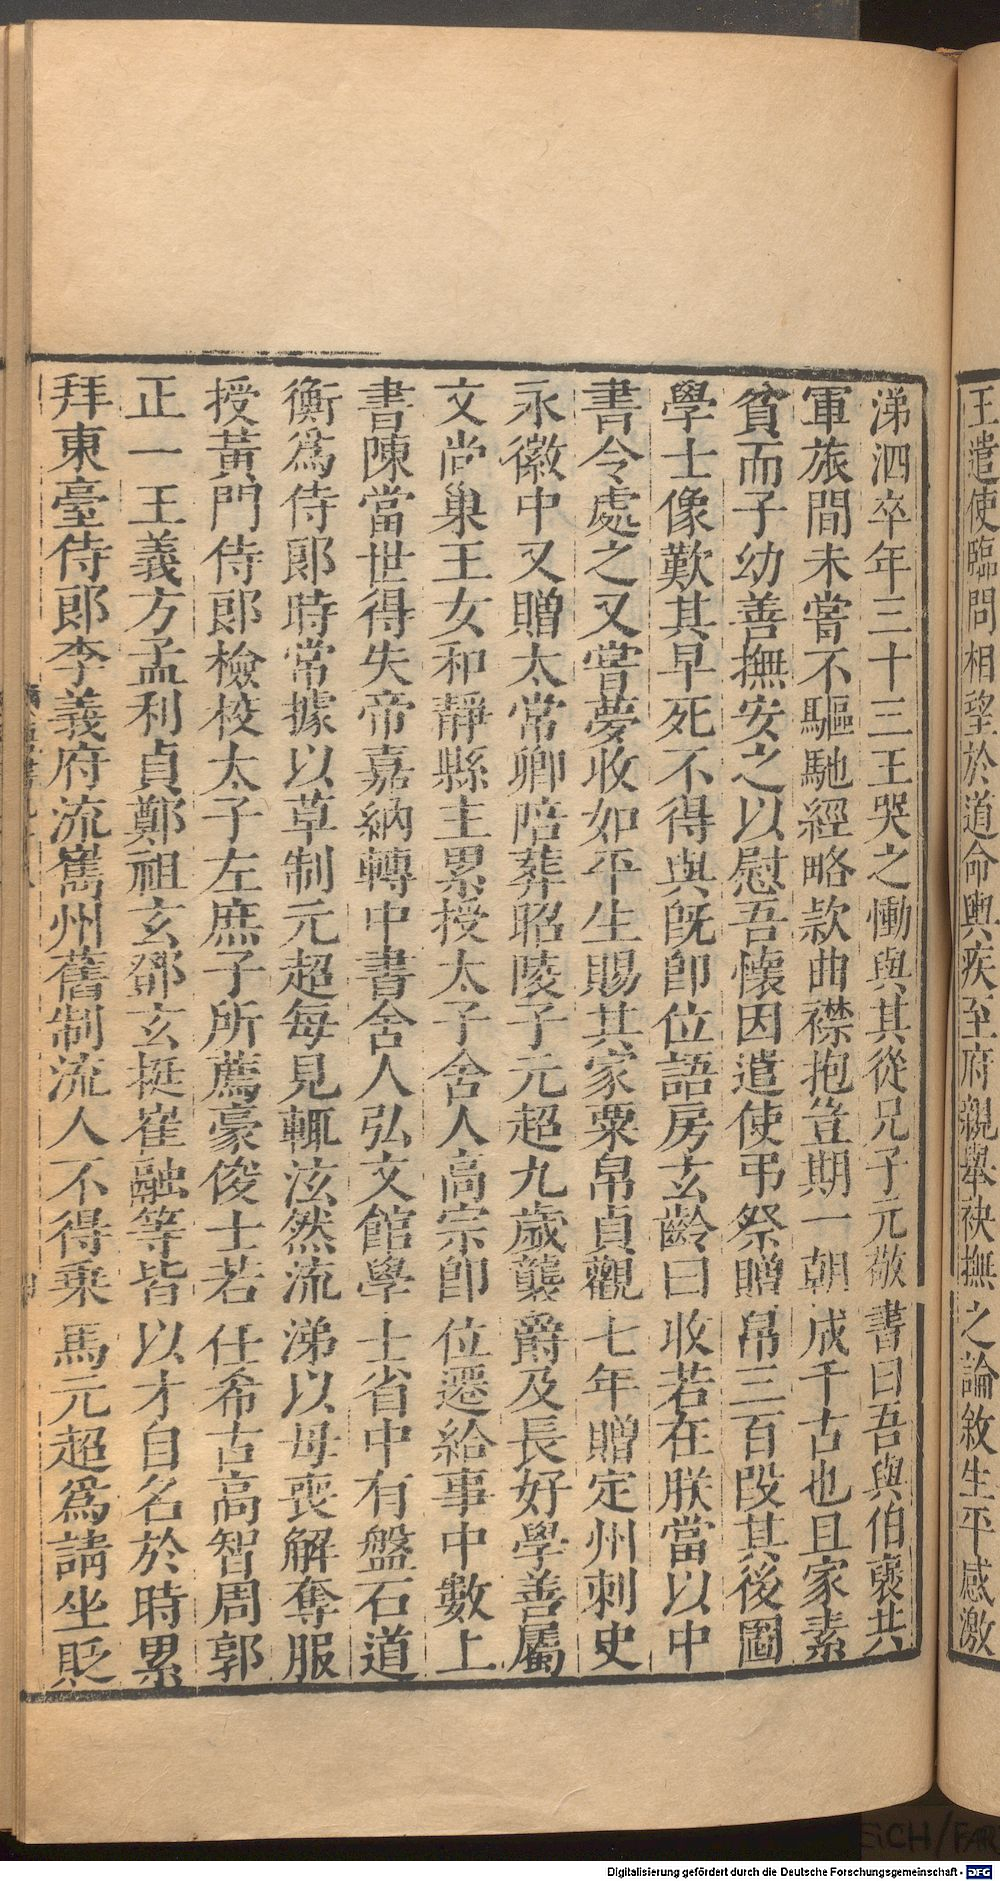 王遣使臨問相望於道命輿疾至府親舉袂撫之論敘生平感激
涕泗卒年三十三王哭之慟與其從兄子元敬書曰吾與伯褒共
軍旅間未嘗不驅馳經略款曲襟抱豈期一朝成千古也且家素
貧而子幼善撫安之以慰吾懷因遣使弔祭贈帛三百段其後圖
學士像歎其早死不得與旣卽位語房玄齡曰收若在朕當以中
書令處之又嘗夢收如平生賜其家粟帛貞觀七年贈定州刺史
永徽中又贈太常卿陪葬昭陵子元超九歲襲爵及長好學善屬
文尚巢王女和靜縣主累授太子舍人高宗卽位遷給事中數上
書陳當世得失帝嘉納轉中書舍人弘文館學士省中有盤石道
衡爲侍郎時常據以草制元超每見輒泫然流涕以母喪解奪服
授黃門侍郎檢校太子左庶子所薦豪俊士若任希古高智周郭
正一王義方孟利貞鄭祖玄鄧玄挺崔融等皆以才自名於時累
拜東臺侍郎李義府流巂州舊制流人不得乗馬元超爲請坐貶
Digitalisierung gefördert durch die Deutsche Forschungsgemeinschaft - DFG